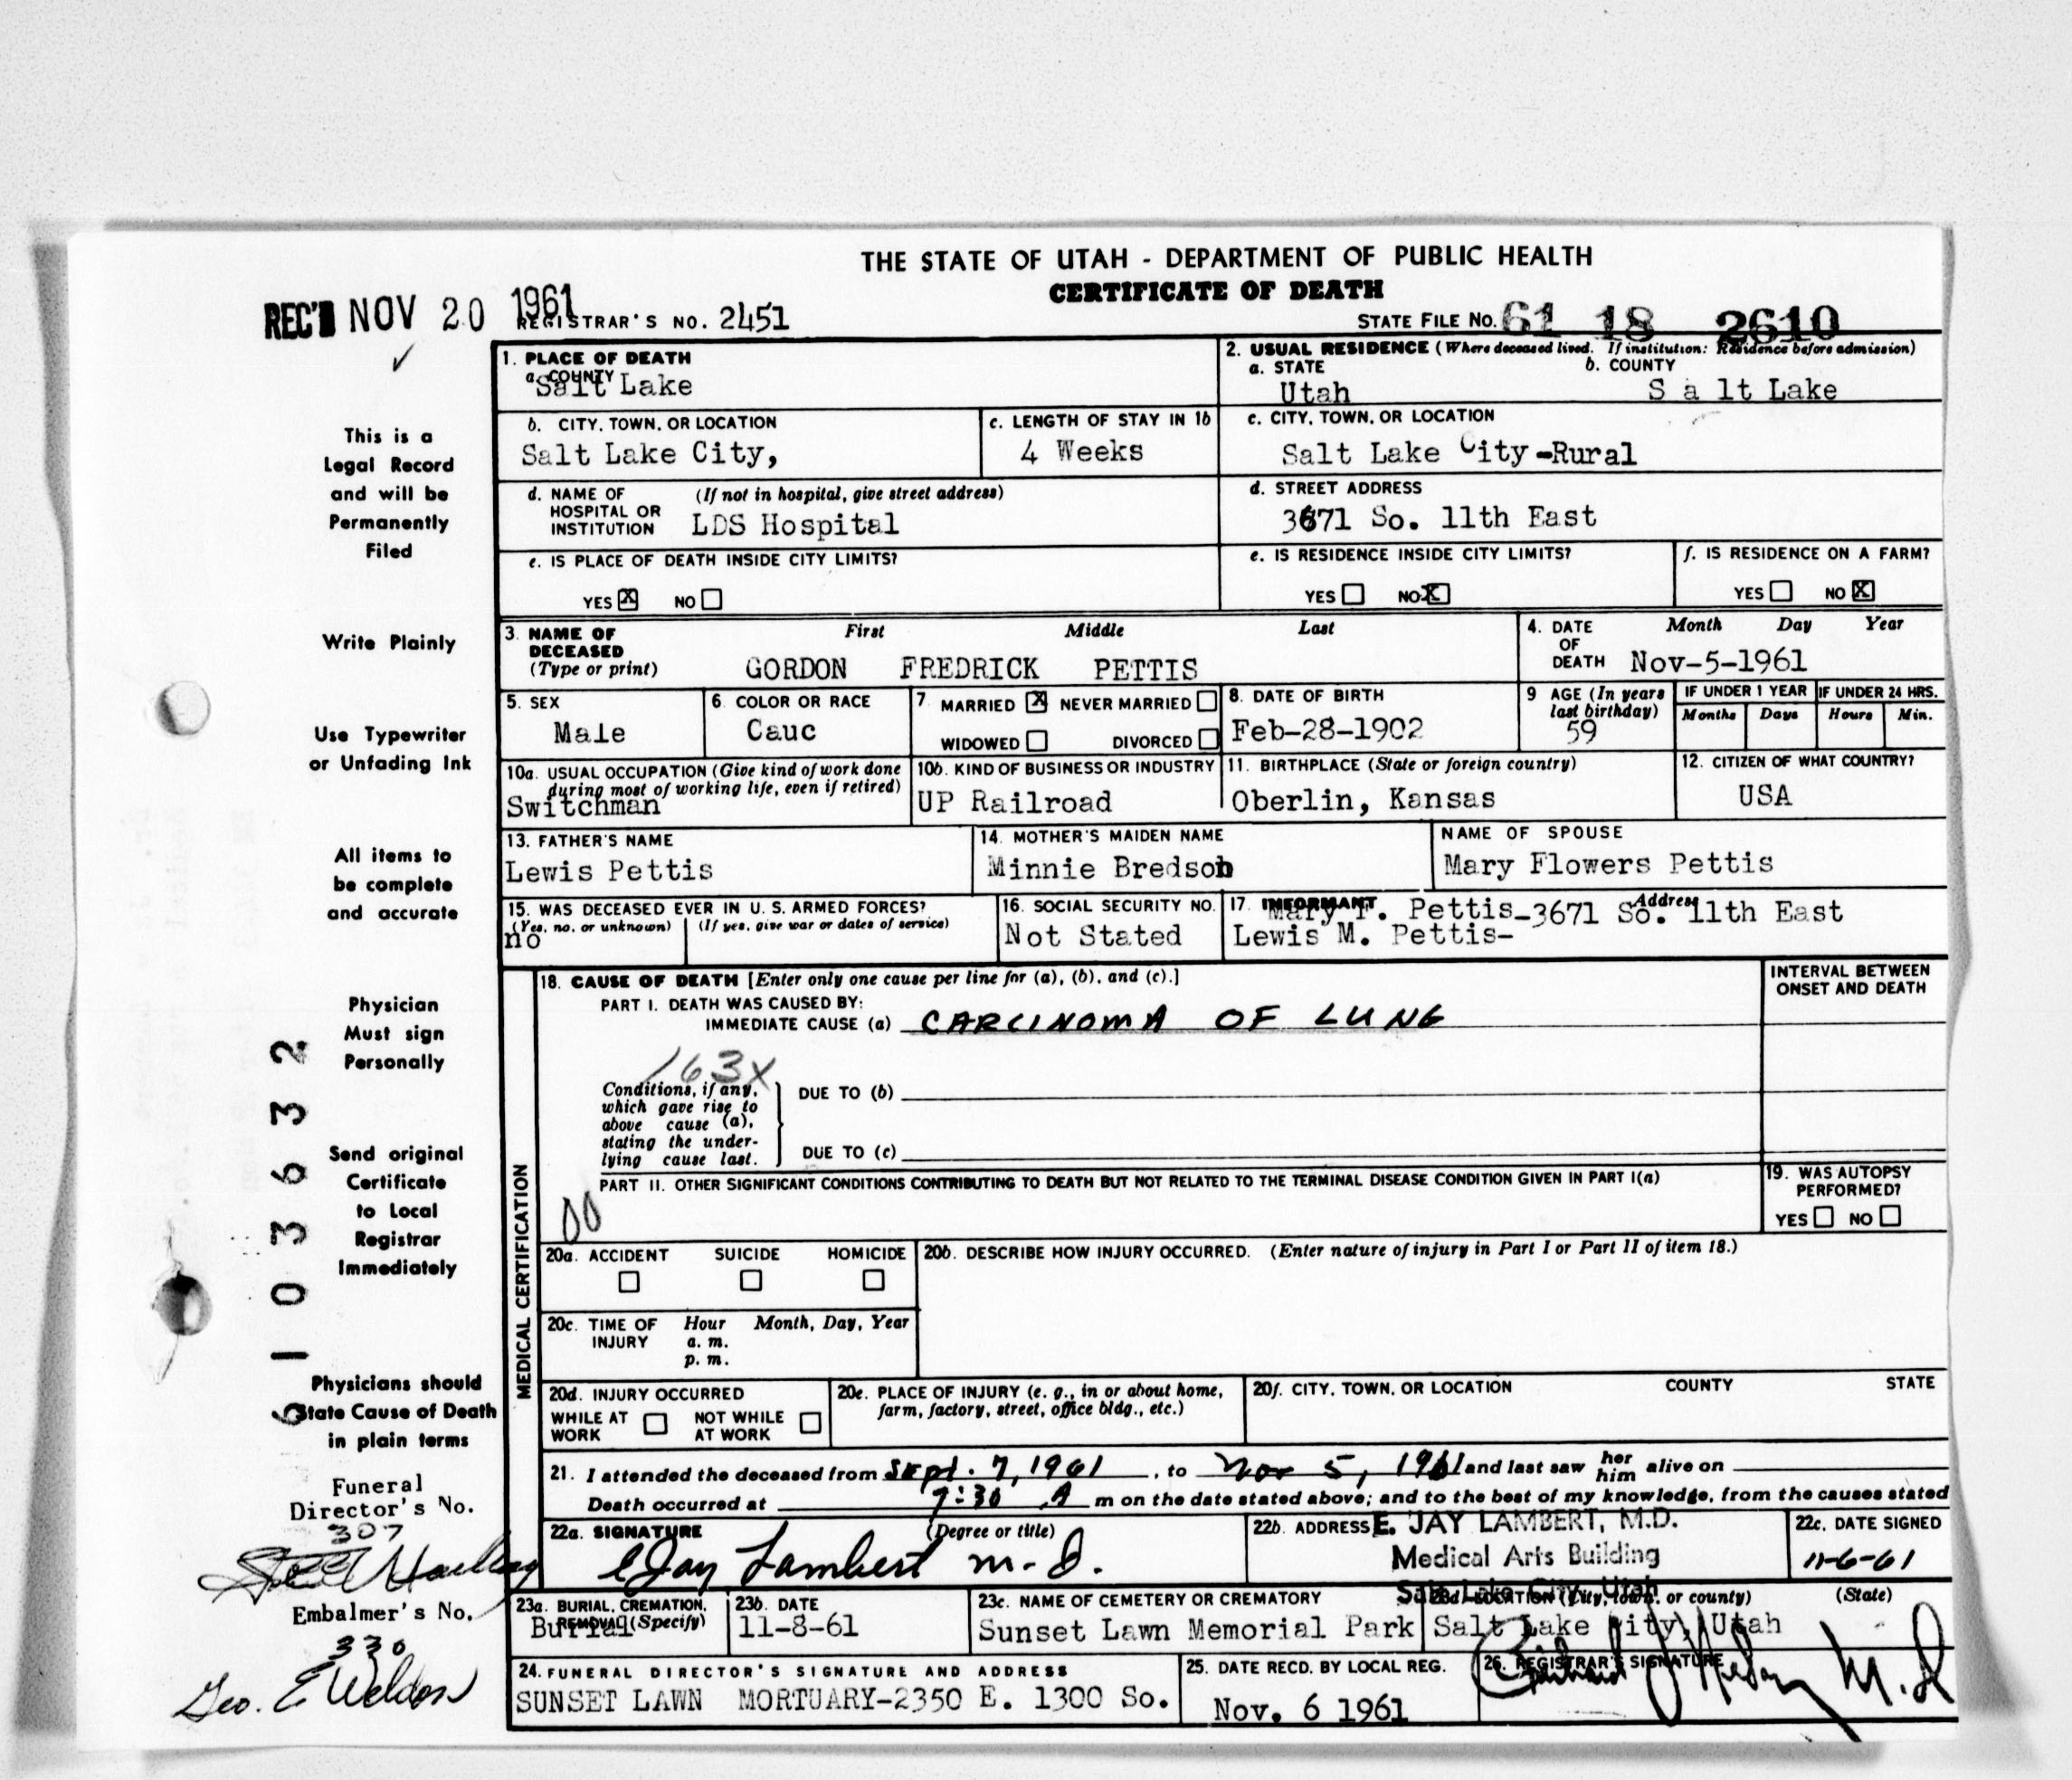 THE STATE OF UTAH - DEPARTMENT OF PUBLIC HEALTH
CERTIFICATE OF DEATH
REC'D NOV 20 1961
REGISTRAR'S NO. 2451
STATE FILE NO. 61 18 2610
This is a
Legal Record
and will be
Permanently
Filed
Write Plainly
Use Typewriter
or Unfading Ink
All items to
be complete
and accurate
Physician
Must sign
Personally
Send original
Certificate
to Local
Registrar
Immediately
Physicians should
State Cause of Death
in plain terms
Funeral
Director's No.
307
Embalmer's No.
330
Geo. E Weldon
6103632
1. PLACE OF DEATH
a. COUNTY
Salt Lake
2. USUAL RESIDENCE (Where deceased lived. If institution: Residence before admission)
a. STATE b. COUNTY
Utah S a lt Lake
b. CITY, TOWN, OR LOCATION
Salt Lake City,
c. LENGTH OF STAY IN 1b
4 Weeks
c. CITY, TOWN, OR LOCATION
Salt Lake City-Rural
d. NAME OF (If not in hospital, give street address)
HOSPITAL OR
INSTITUTION LDS Hospital
d. STREET ADDRESS
3671 So. 11th East
e. IS PLACE OF DEATH INSIDE CITY LIMITS?
YES X NO
e. IS RESIDENCE INSIDE CITY LIMITS?
YES NO X
f. IS RESIDENCE ON A FARM?
YES NO X
3. NAME OF First Middle Last
DECEASED
(Type or print) GORDON FREDRICK PETTIS
4. DATE Month Day Year
OF
DEATH Nov-5-1961
5. SEX
Male
6. COLOR OR RACE
Cauc
7. MARRIED X NEVER MARRIED
WIDOWED DIVORCED
8. DATE OF BIRTH
Feb-28-1902
9 AGE (In years
last birthday)
59
IF UNDER 1 YEAR
Months Days
IF UNDER 24 HRS.
Hours Min.
10a. USUAL OCCUPATION (Give kind of work done
during most of working life, even if retired)
Switchman
10b. KIND OF BUSINESS OR INDUSTRY
UP Railroad
11. BIRTHPLACE (State or foreign country)
Oberlin, Kansas
12. CITIZEN OF WHAT COUNTRY?
USA
13. FATHER'S NAME
Lewis Pettis
14. MOTHER'S MAIDEN NAME
Minnie Bredson
NAME OF SPOUSE
Mary Flowers Pettis
15. WAS DECEASED EVER IN U. S. ARMED FORCES?
(Yes, no, or unknown) (If yes, give war or dates of service)
no
16. SOCIAL SECURITY NO.
Not Stated
17. INFORMANT Address
Mary F. Pettis-3671 So. 11th East
Lewis M. Pettis-
MEDICAL CERTIFICATION
18. CAUSE OF DEATH [Enter only one cause per line for (a), (b), and (c).]
PART I. DEATH WAS CAUSED BY:
IMMEDIATE CAUSE (a) CARCINOMA OF LUNG
INTERVAL BETWEEN
ONSET AND DEATH
163X
Conditions, if any,
which gave rise to
above cause (a),
stating the under-
lying cause last.
DUE TO (b)
DUE TO (c)
PART II. OTHER SIGNIFICANT CONDITIONS CONTRIBUTING TO DEATH BUT NOT RELATED TO THE TERMINAL DISEASE CONDITION GIVEN IN PART I(a)
00
19. WAS AUTOPSY
PERFORMED?
YES NO
20a. ACCIDENT SUICIDE HOMICIDE
20b. DESCRIBE HOW INJURY OCCURRED. (Enter nature of injury in Part I or Part II of item 18.)
20c. TIME OF Hour Month, Day, Year
INJURY a. m.
p. m.
20d. INJURY OCCURRED
WHILE AT NOT WHILE
WORK AT WORK
20e. PLACE OF INJURY (e. g., in or about home,
farm, factory, street, office bldg., etc.)
20f. CITY, TOWN, OR LOCATION COUNTY STATE
21. I attended the deceased from Sept. 7, 1961, to Nov 5, 1961 and last saw her him alive on
Death occurred at 7:30 A m on the date stated above; and to the best of my knowledge, from the causes stated
22a. SIGNATURE (Degree or title)
E Jay Lambert M.D.
22b. ADDRESS E. JAY LAMBERT, M.D.
Medical Arts Building
Salt Lake City, Utah
22c. DATE SIGNED
11-6-61
23a. BURIAL, CREMATION,
REMOVAL (Specify)
Burial
23b. DATE
11-8-61
23c. NAME OF CEMETERY OR CREMATORY
Sunset Lawn Memorial Park
23d. LOCATION (City, town, or county) (State)
Salt Lake City, Utah
24. FUNERAL DIRECTOR'S SIGNATURE AND ADDRESS
SUNSET LAWN MORTUARY-2350 E. 1300 So.
25. DATE RECD. BY LOCAL REG.
Nov. 6 1961
26. REGISTRAR'S SIGNATURE
M.D